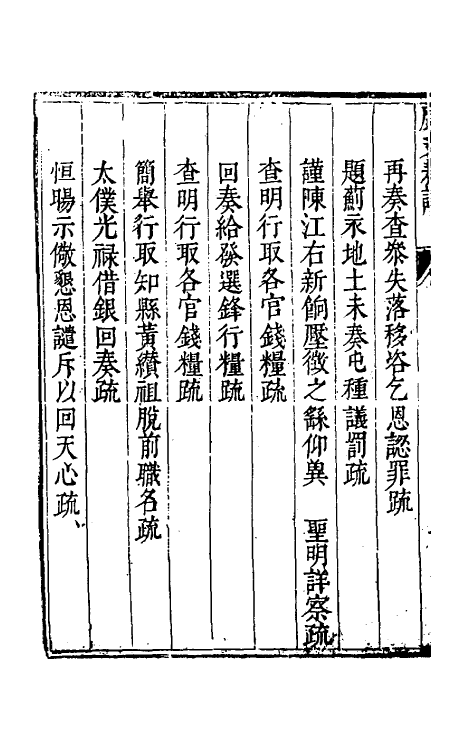 再奏查叅失落移咨乞恩認罪疏
題薊永地土未奏屯種議罰疏
謹陳江右新餉壓徵之繇仰異　聖明詳察疏
查明行取各官錢糧疏
回奏給發選鋒行糧疏
查明行取各官錢糧疏
簡舉行取知縣黃纘祖脫前職名疏
太僕光祿借銀回奏疏
恒暘示儆懇恩譴斥以回天心疏、